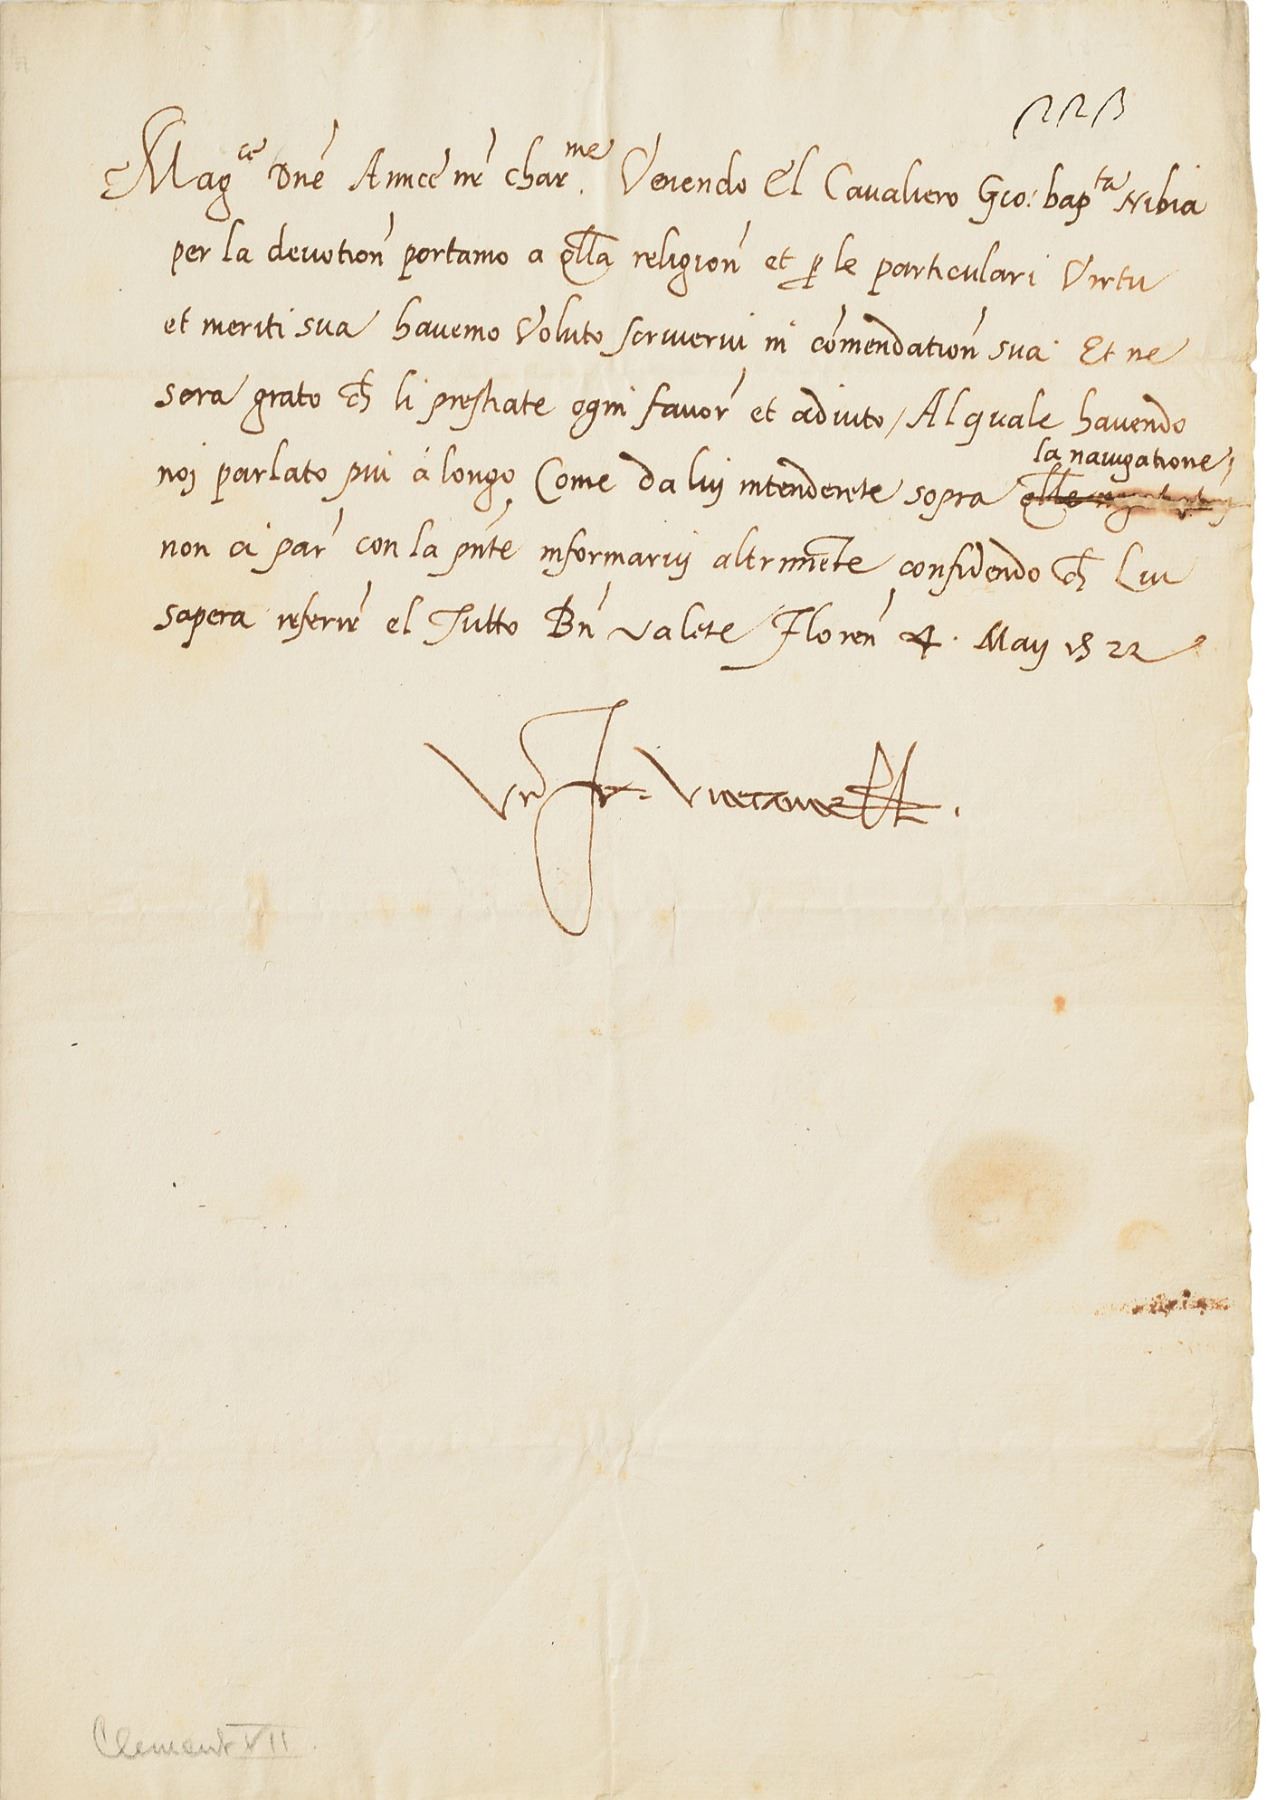 223
Mag.ce Dne Amice nr char.me Venendo El Cavaliero Gio: bap.ta Nibia
per la devotion portamo a qlla religion et p le particulari Virtu
et meriti sua havemo Voluto scrivervi in comendation sua. Et ne
sera grato ch li prestiate ogni favor et adiuto / Al quale havendo
la navigatione,
noj parlato piu à longo Come da luj intenderete sopra qlle
non ci par con la pnte informarvij altrimente confidendo ch Lui
sapera referir el Tutto Bn valete Floren 4. Maij 1522
Vr Jv. Vicecancell.
Clement VII